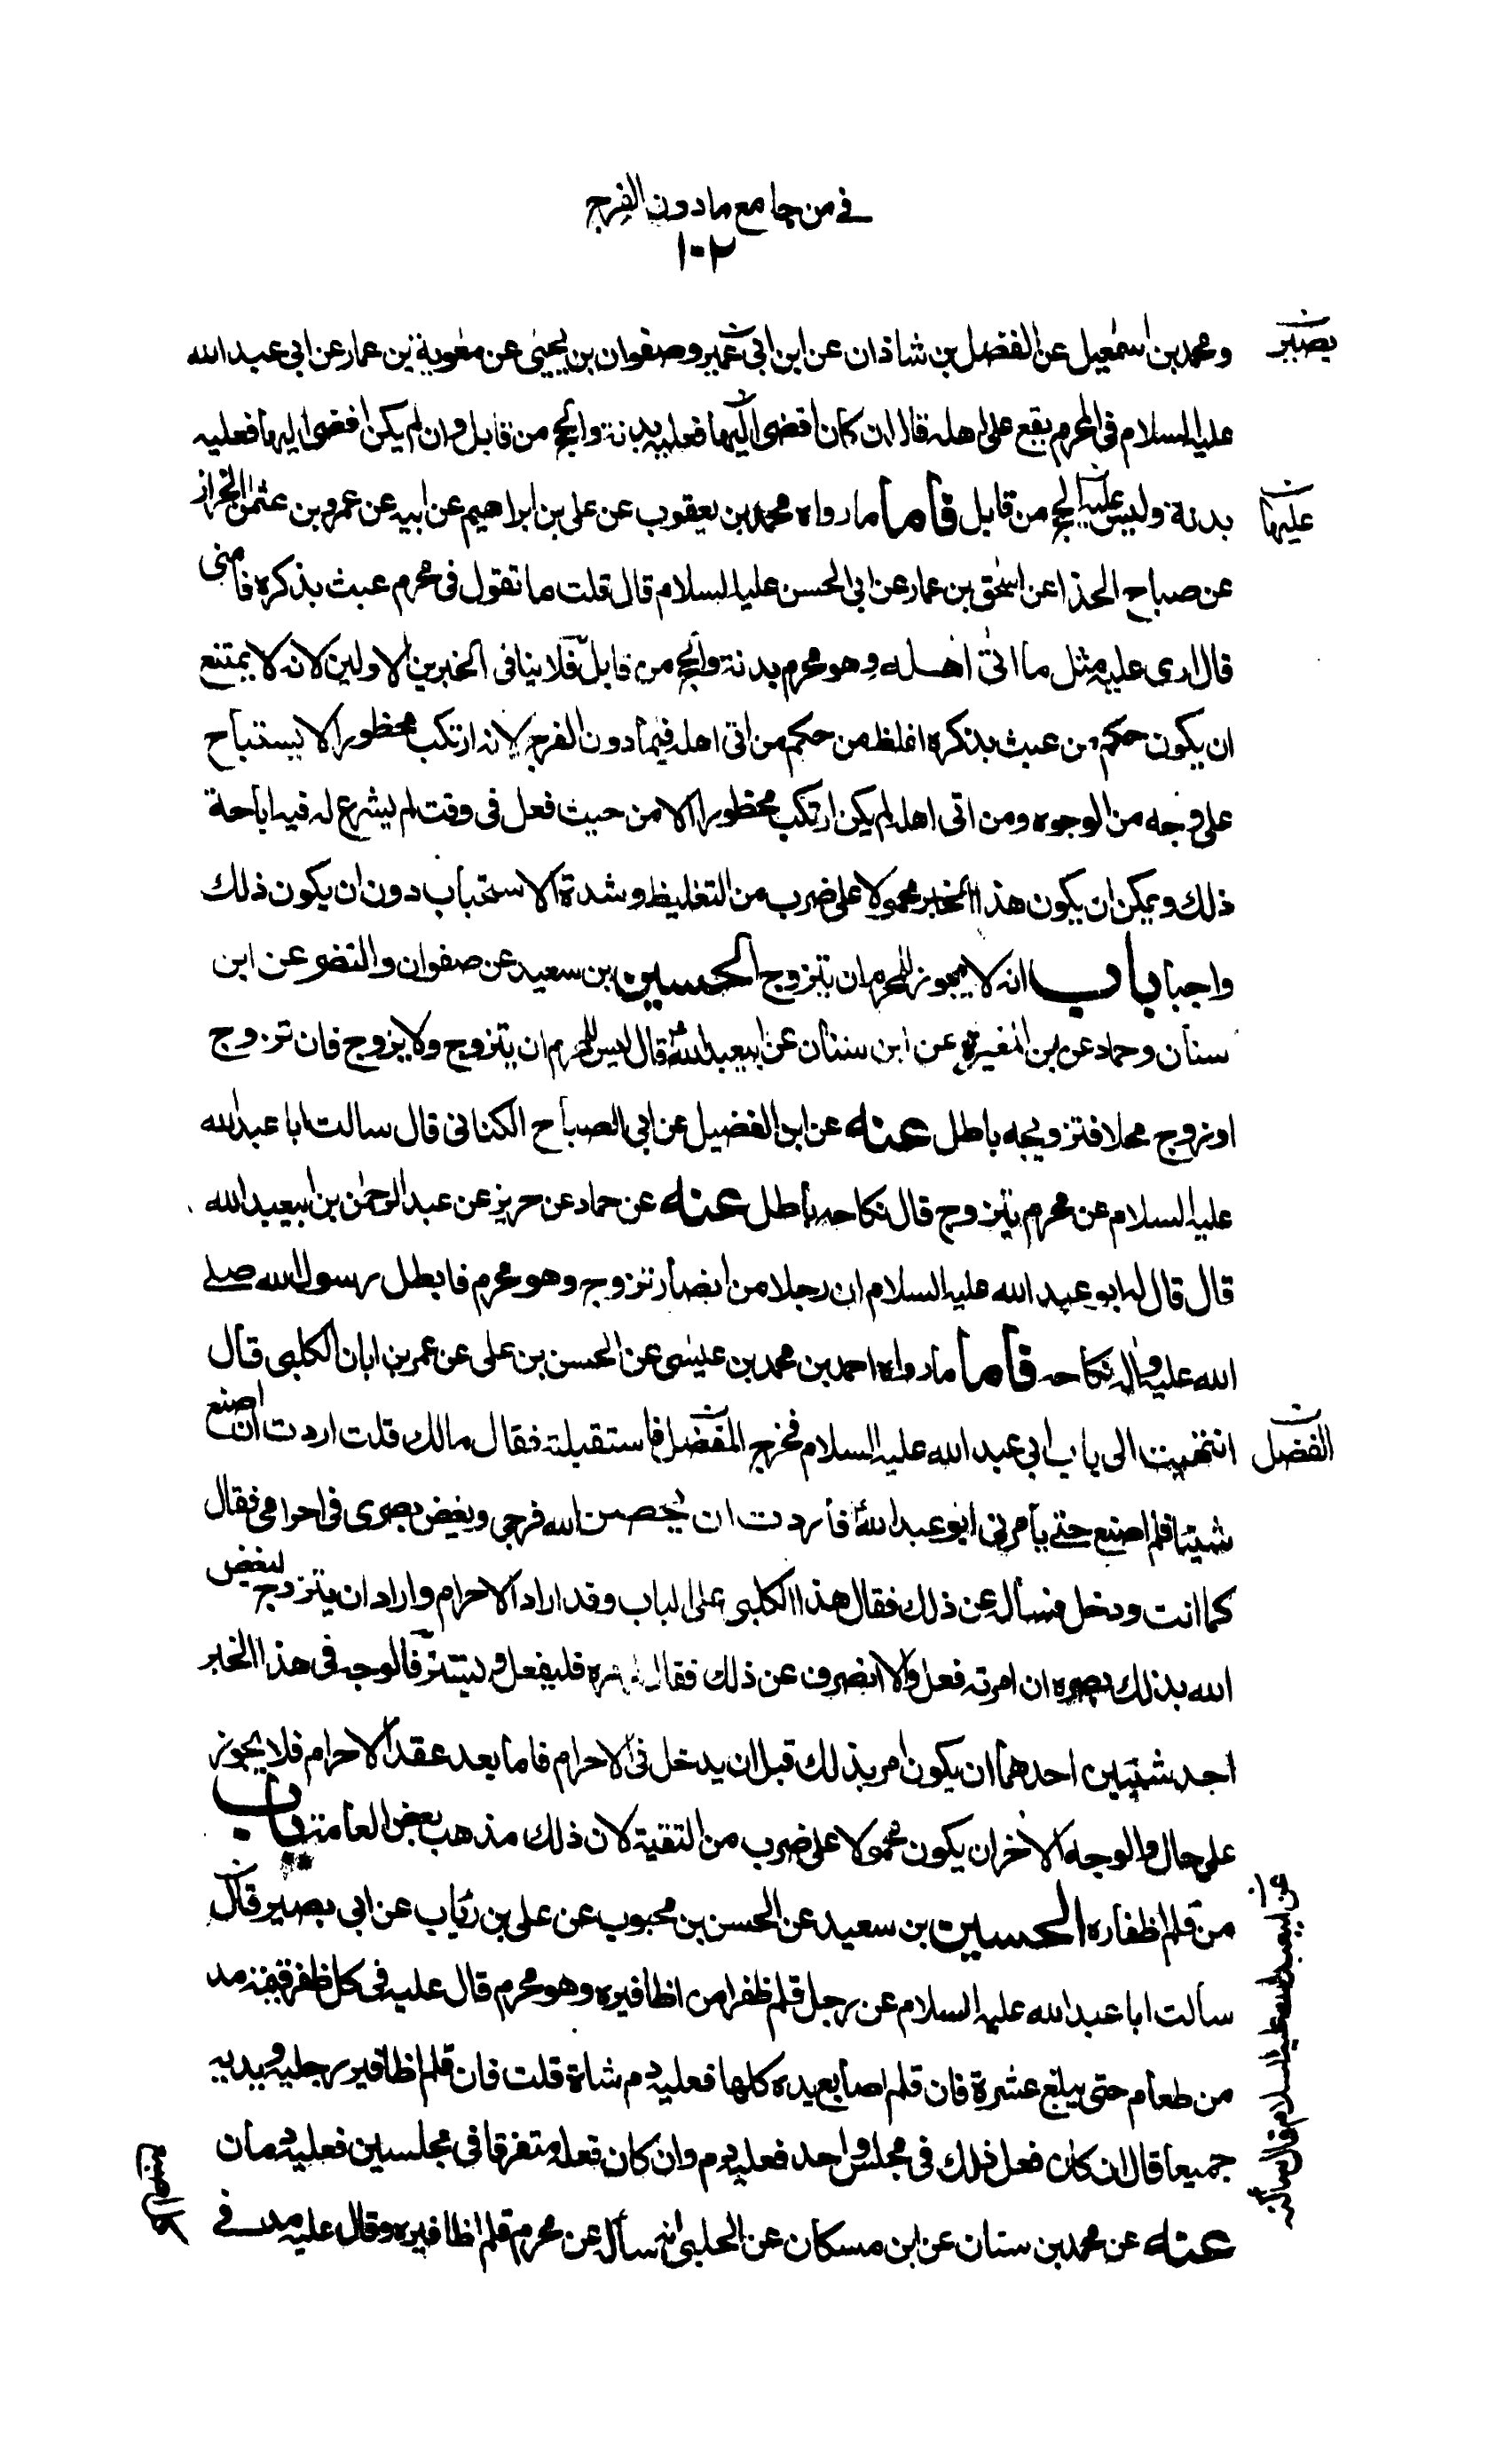 في من جامع مادون الفرج
١٠٢
ومحمد بن اسمعيل عن الفضل بن شاذان عن ابن ابي عمير وصفوان بن يحيى عن معوية بن عمار عن ابي عبد الله
بصير
عليه السلام في المحرم يقع على اهله قال ان كان افضى اليها فعليه بدنة والحج من قابل وان لم يكن افضى اليها فعليه
بدنة وليس عليه الحج من قابل فاما ما رواه محمد بن يعقوب عن علي بن ابراهيم عن ابيه عن عمرو بن عثمن الخراز
عليهما
عن صباح الحذا عن اسحق بن عمار عن ابي الحسن عليه السلام قال قلت ما تقول في محرم عبث بذكره فامنى
قال ارى عليه مثل ما اتى اهله وهو محرم بدنة والحج من قابل فلا ينافي الخبرين الاولين لانه لا يمتنع
ان يكون حكم من عبث بذكره اغلظ من حكم من اتى اهله فيما دون الفرج لانه ارتكب محظورا لا يستباح
على وجه من الوجوه ومن اتى اهله لم يكن ارتكب محظورا الا من حيث فعل في وقت لم يشرع له فيه اباحة
ذلك ويمكن ان يكون هذا الخبر محمولا على ضرب من التغليظ وشدة الاستحباب دون ان يكون ذلك
واجبا باب انه لا يجوز للمحرم ان يتزوج الحسين بن سعيد عن صفوان والنضر عن ابن
سنان وحماد عن بن المغيرة عن ابن سنان عن ابيعبد الله ع قال ليس للمحرم ان يتزوج ولا يزوج فان تزوج
او زوج محلا فتزويجه باطل عنه عن ابن الفضيل عن ابي الصباح الكناني قال سالت ابا عبد الله
عليه السلام عن محرم يتزوج قال نكاحه باطل عنه عن حماد عن حريز عن عبد الرحمن بن ابيعبد الله
قال قال له ابو عبد الله عليه السلام ان رجلا من انصار تزوج وهو محرم فابطل رسول الله صلى
الله عليه واله نكاحه فاما ما رواه احمد بن محمد بن عيسى عن الحسن بن علي عن عمر بن ابان الكلبي قال
انتهيت الى باب ابي عبد الله عليه السلام فخرج المفضل فاستقبلته فقال مالك قلت اردت ان اصنع
الفضل
شيئا فلم اصنع حتى يأمرني ابو عبد الله ع فأردت ان يحصن الله فرجي ويغض بصري في احرامي فقال
كما انت ودخل فسأله عن ذلك فقال هذا الكلبي على الباب وقد اراد الاحرام واراد ان يتزوج ليغض
الله بذلك بصره ان امرته فعل والا انصرف عن ذلك فقال مره فليفعل وليستتر فالوجه في هذا الخبر
احد شيئين احدهما ان يكون امر بذلك قبل ان يدخل في الاحرام فاما بعد عقد الاحرام فلا يجوز
على حال والوجه الاخر ان يكون محمولا على ضرب من التقية لان ذلك مذهب بعض العامة باب
من قلم اظفاره الحسين بن سعيد عن الحسن بن محبوب عن علي بن رئاب عن ابي بصير قال
سألت ابا عبد الله عليه السلام عن رجل قلم ظفرا من اظافيره وهو محرم قال عليه في كل ظفر قيمة مد
من طعام حتى يبلغ عشرة فان قلم اصابع يديه كلها فعليه دم شاة قلت فان قلم اظافير رجليه ويديه
جميعا قال ان كان فعل ذلك في مجلس واحد فعليه دم وان كان فعله متفرقا في مجلسين فعليه دمان
عنه عن محمد بن سنان عن ابن مسكان عن الحلبي انه سأله عن محرم قلم اظافيره وقال عليه مد في
عن ابيعبد الله عليه السلام قال سألته
كل اصبع